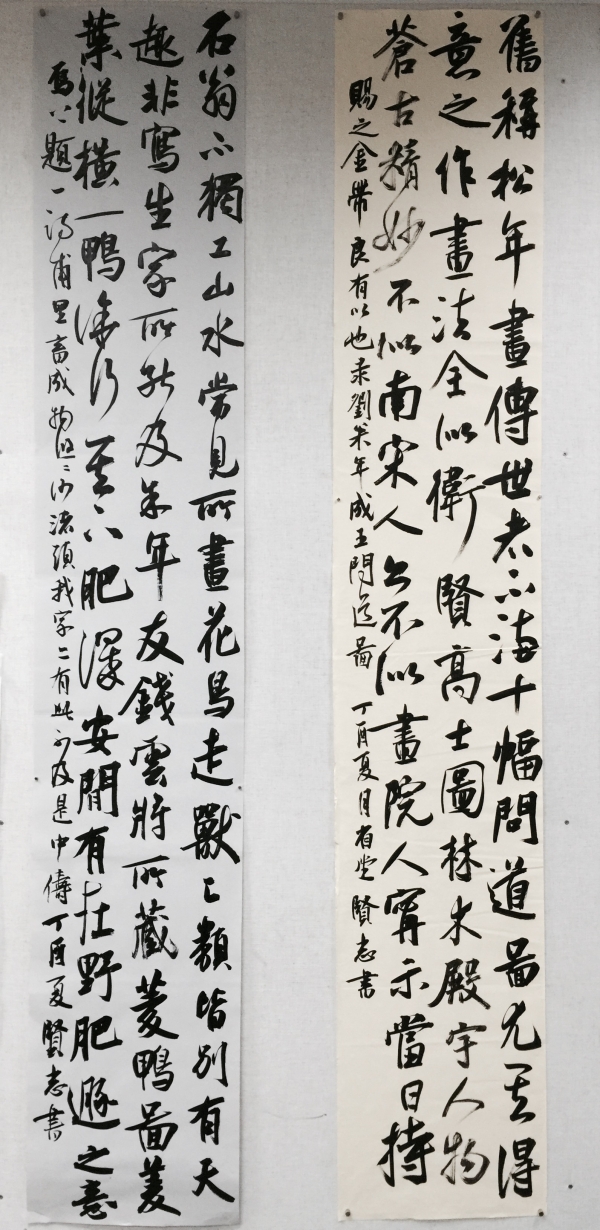 舊稱松年畫傳世者不滿十幅問道圖尤其得
意之作畫法全似衛賢高士圖林木殿宇人物
蒼古精妙不似南宋人公不似畫院人寧宗當日特
賜之金帶良有以也 劉松年成王問道圖 丁酉夏月 賢志書
石翁不獨工山水嘗見所畫花鳥走獸之類皆別有天
趣非寫生家所能及 年友錢雲將所藏菱鴨圖菱
葉縱橫一鴨 行其下肥澤安閒有在野肥遯之意
為之題一詩甫里畜成物 沙渚頭 家亦有此不及是中儔丁酉夏賢志書